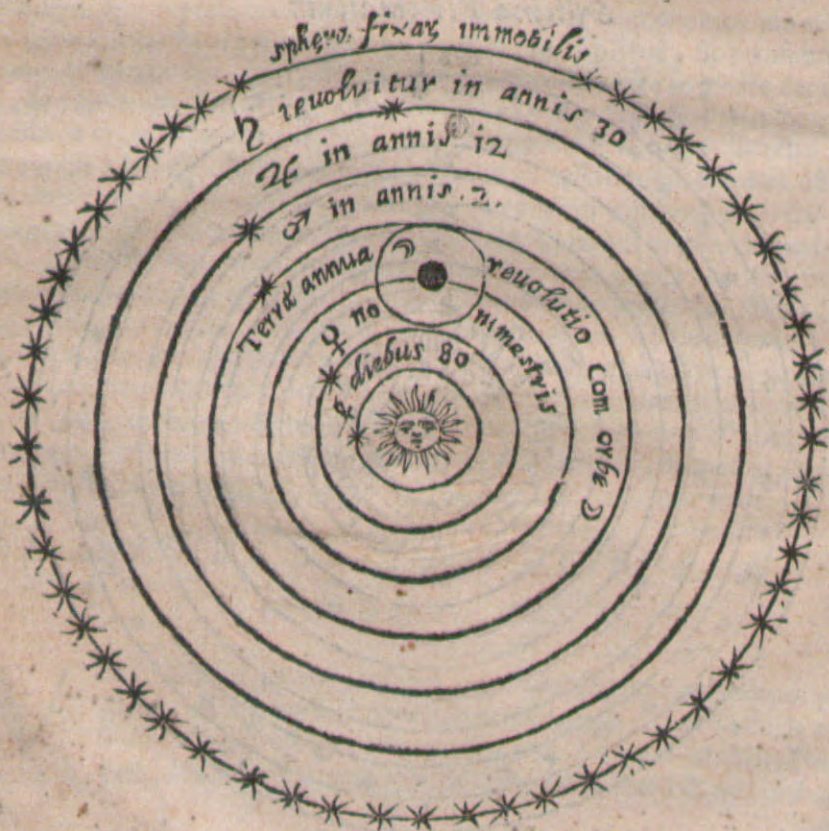 sphęra fixaꝝ immobilis
♄ reuoluitur in annis 30
♃ in annis i2
♂ in annis .2.
Terrę annua reuolutio com orbe ☽
♀ no nimestris
☿ diebus 80